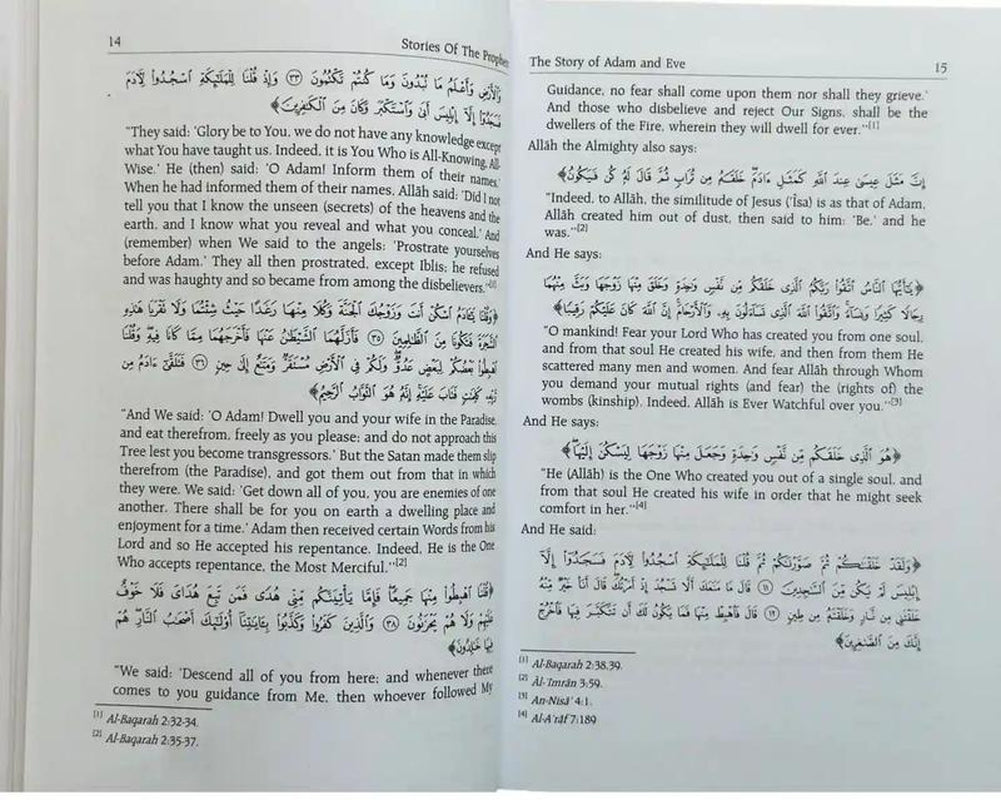 14
Stories Of The Prophets
وَٱلْأَرْضِ وَأَعْلَمُ مَا تُبْدُونَ وَمَا كُنتُمْ تَكْتُمُونَ ٣٣ وَإِذْ قُلْنَا لِلْمَلَٰٓئِكَةِ ٱسْجُدُوا۟ لِـَٔادَمَ
فَسَجَدُوٓا۟ إِلَّآ إِبْلِيسَ أَبَىٰ وَٱسْتَكْبَرَ وَكَانَ مِنَ ٱلْكَٰفِرِينَ﴾
"They said: 'Glory be to You, we do not have any knowledge except
what You have taught us. Indeed, it is You Who is All-Knowing, All-
Wise.' He (then) said: 'O Adam! Inform them of their names.'
When he had informed them of their names, Allāh said: 'Did I not
tell you that I know the unseen (secrets) of the heavens and the
earth, and I know what you reveal and what you conceal.' And
(remember) when We said to the angels: 'Prostrate yourselves
before Adam.' They all then prostrated, except Iblis; he refused
and was haughty and so became from among the disbelievers."[1]
﴿وَقُلْنَا يَٰٓـَٔادَمُ ٱسْكُنْ أَنتَ وَزَوْجُكَ ٱلْجَنَّةَ وَكُلَا مِنْهَا رَغَدًا حَيْثُ شِئْتُمَا وَلَا تَقْرَبَا هَٰذِهِ
ٱلشَّجَرَةَ فَتَكُونَا مِنَ ٱلظَّٰلِمِينَ ٣٥ فَأَزَلَّهُمَا ٱلشَّيْطَٰنُ عَنْهَا فَأَخْرَجَهُمَا مِمَّا كَانَا فِيهِ وَقُلْنَا
ٱهْبِطُوا۟ بَعْضُكُمْ لِبَعْضٍ عَدُوٌّ وَلَكُمْ فِى ٱلْأَرْضِ مُسْتَقَرٌّ وَمَتَٰعٌ إِلَىٰ حِينٍ ٣٦ فَتَلَقَّىٰٓ ءَادَمُ مِن
رَّبِّهِۦ كَلِمَٰتٍ فَتَابَ عَلَيْهِ إِنَّهُۥ هُوَ ٱلتَّوَّابُ ٱلرَّحِيمُ﴾
"And We said: 'O Adam! Dwell you and your wife in the Paradise,
and eat therefrom, freely as you please; and do not approach this
Tree lest you become transgressors.' But the Satan made them slip
therefrom (the Paradise), and got them out from that in which
they were. We said: 'Get down all of you, you are enemies of one
another. There shall be for you on earth a dwelling place and
enjoyment for a time.' Adam then received certain Words from his
Lord and so He accepted his repentance. Indeed, He is the One
Who accepts repentance, the Most Merciful."[2]
﴿قُلْنَا ٱهْبِطُوا۟ مِنْهَا جَمِيعًا فَإِمَّا يَأْتِيَنَّكُم مِّنِّى هُدًى فَمَن تَبِعَ هُدَاىَ فَلَا خَوْفٌ
عَلَيْهِمْ وَلَا هُمْ يَحْزَنُونَ ٣٨ وَٱلَّذِينَ كَفَرُوا۟ وَكَذَّبُوا۟ بِـَٔايَٰتِنَآ أُو۟لَٰٓئِكَ أَصْحَٰبُ ٱلنَّارِ هُمْ
فِيهَا خَٰلِدُونَ﴾
"We said: 'Descend all of you from here; and whenever there
comes to you guidance from Me, then whoever followed My
[1] Al-Baqarah 2:32-34.
[2] Al-Baqarah 2:35-37.
The Story of Adam and Eve
15
Guidance, no fear shall come upon them nor shall they grieve.'
And those who disbelieve and reject Our Signs, shall be the
dwellers of the Fire, wherein they will dwell for ever."[1]
Allāh the Almighty also says:
﴿إِنَّ مَثَلَ عِيسَىٰ عِندَ ٱللَّهِ كَمَثَلِ ءَادَمَ خَلَقَهُۥ مِن تُرَابٍ ثُمَّ قَالَ لَهُۥ كُن فَيَكُونُ﴾
"Indeed, to Allāh, the similitude of Jesus ('Īsa) is as that of Adam,
Allāh created him out of dust, then said to him: 'Be,' and he
was."[2]
And He says:
﴿يَٰٓأَيُّهَا ٱلنَّاسُ ٱتَّقُوا۟ رَبَّكُمُ ٱلَّذِى خَلَقَكُم مِّن نَّفْسٍ وَٰحِدَةٍ وَخَلَقَ مِنْهَا زَوْجَهَا وَبَثَّ مِنْهُمَا
رِجَالًا كَثِيرًا وَنِسَآءً وَٱتَّقُوا۟ ٱللَّهَ ٱلَّذِى تَسَآءَلُونَ بِهِۦ وَٱلْأَرْحَامَ إِنَّ ٱللَّهَ كَانَ عَلَيْكُمْ رَقِيبًا﴾
"O mankind! Fear your Lord Who has created you from one soul,
and from that soul He created his wife, and then from them He
scattered many men and women. And fear Allāh through Whom
you demand your mutual rights (and fear) the (rights of) the
wombs (kinship). Indeed, Allāh is Ever Watchful over you."[3]
And He says:
﴿هُوَ ٱلَّذِى خَلَقَكُم مِّن نَّفْسٍ وَٰحِدَةٍ وَجَعَلَ مِنْهَا زَوْجَهَا لِيَسْكُنَ إِلَيْهَا﴾
"He (Allāh) is the One Who created you out of a single soul, and
from that soul He created his wife in order that he might seek
comfort in her."[4]
And He said:
﴿وَلَقَدْ خَلَقْنَٰكُمْ ثُمَّ صَوَّرْنَٰكُمْ ثُمَّ قُلْنَا لِلْمَلَٰٓئِكَةِ ٱسْجُدُوا۟ لِـَٔادَمَ فَسَجَدُوٓا۟ إِلَّآ
إِبْلِيسَ لَمْ يَكُن مِّنَ ٱلسَّٰجِدِينَ ١١ قَالَ مَا مَنَعَكَ أَلَّا تَسْجُدَ إِذْ أَمَرْتُكَ قَالَ أَنَا۠ خَيْرٌ مِّنْهُ
خَلَقْتَنِى مِن نَّارٍ وَخَلَقْتَهُۥ مِن طِينٍ ١٢ قَالَ فَٱهْبِطْ مِنْهَا فَمَا يَكُونُ لَكَ أَن تَتَكَبَّرَ فِيهَا فَٱخْرُجْ
إِنَّكَ مِنَ ٱلصَّٰغِرِينَ﴾
[1] Al-Baqarah 2:38,39.
[2] Āl-'Imrān 3:59.
[3] An-Nisā' 4:1.
[4] Al-A'rāf 7:189